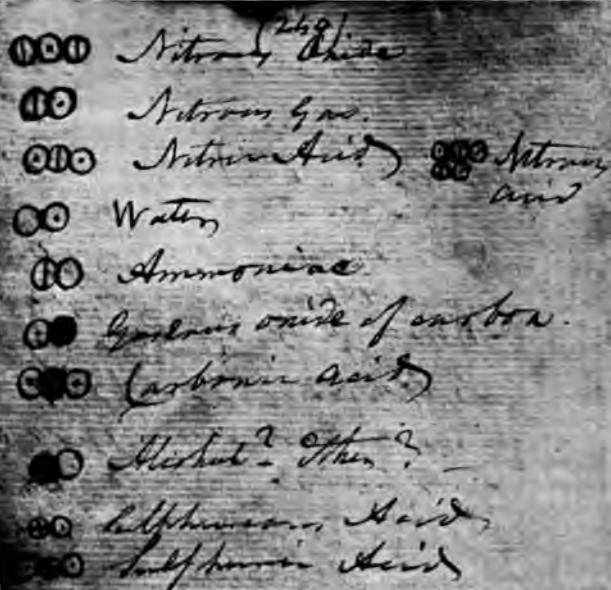 (248)
Nitrous Oxide
Nitrous Gas.
Nitric Acid Nitrous acid
Water
Ammoniac
Gaseous oxide of carbon.
Carbonic acid
Alcohol? Ether?
Sulphureous Acid
Sulphuric Acid